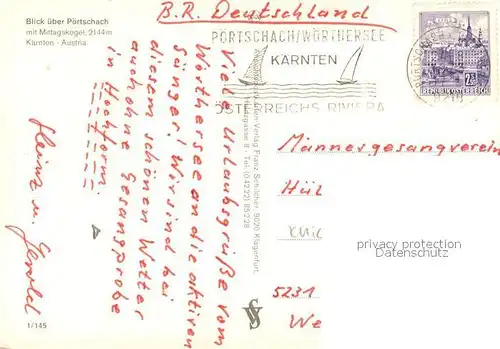 Blick über Pörtschach
mit Mittagskogel, 2144m
Kärnten - Austria
B.R. Deutschland
PÖRTSCHACH/WÖRTHERSEE
KÄRNTEN
ÖSTERREICHS RIVIERA
REPUBLIK ÖSTERREICH
Viele Urlaubsgrüße vom
Wörthersee an die aktiven
Sänger! Wir sind bei
diesem schönen Wetter
auch ohne Gesangprobe
in Hochform.
Heinz u. Gerold
Verlag Franz Schilcher, 9020 Klagenfurt,
Tel. (04222) 85228
Männergesangverein
Hül
privacy protection
Datenschutz
5231
We
1/145